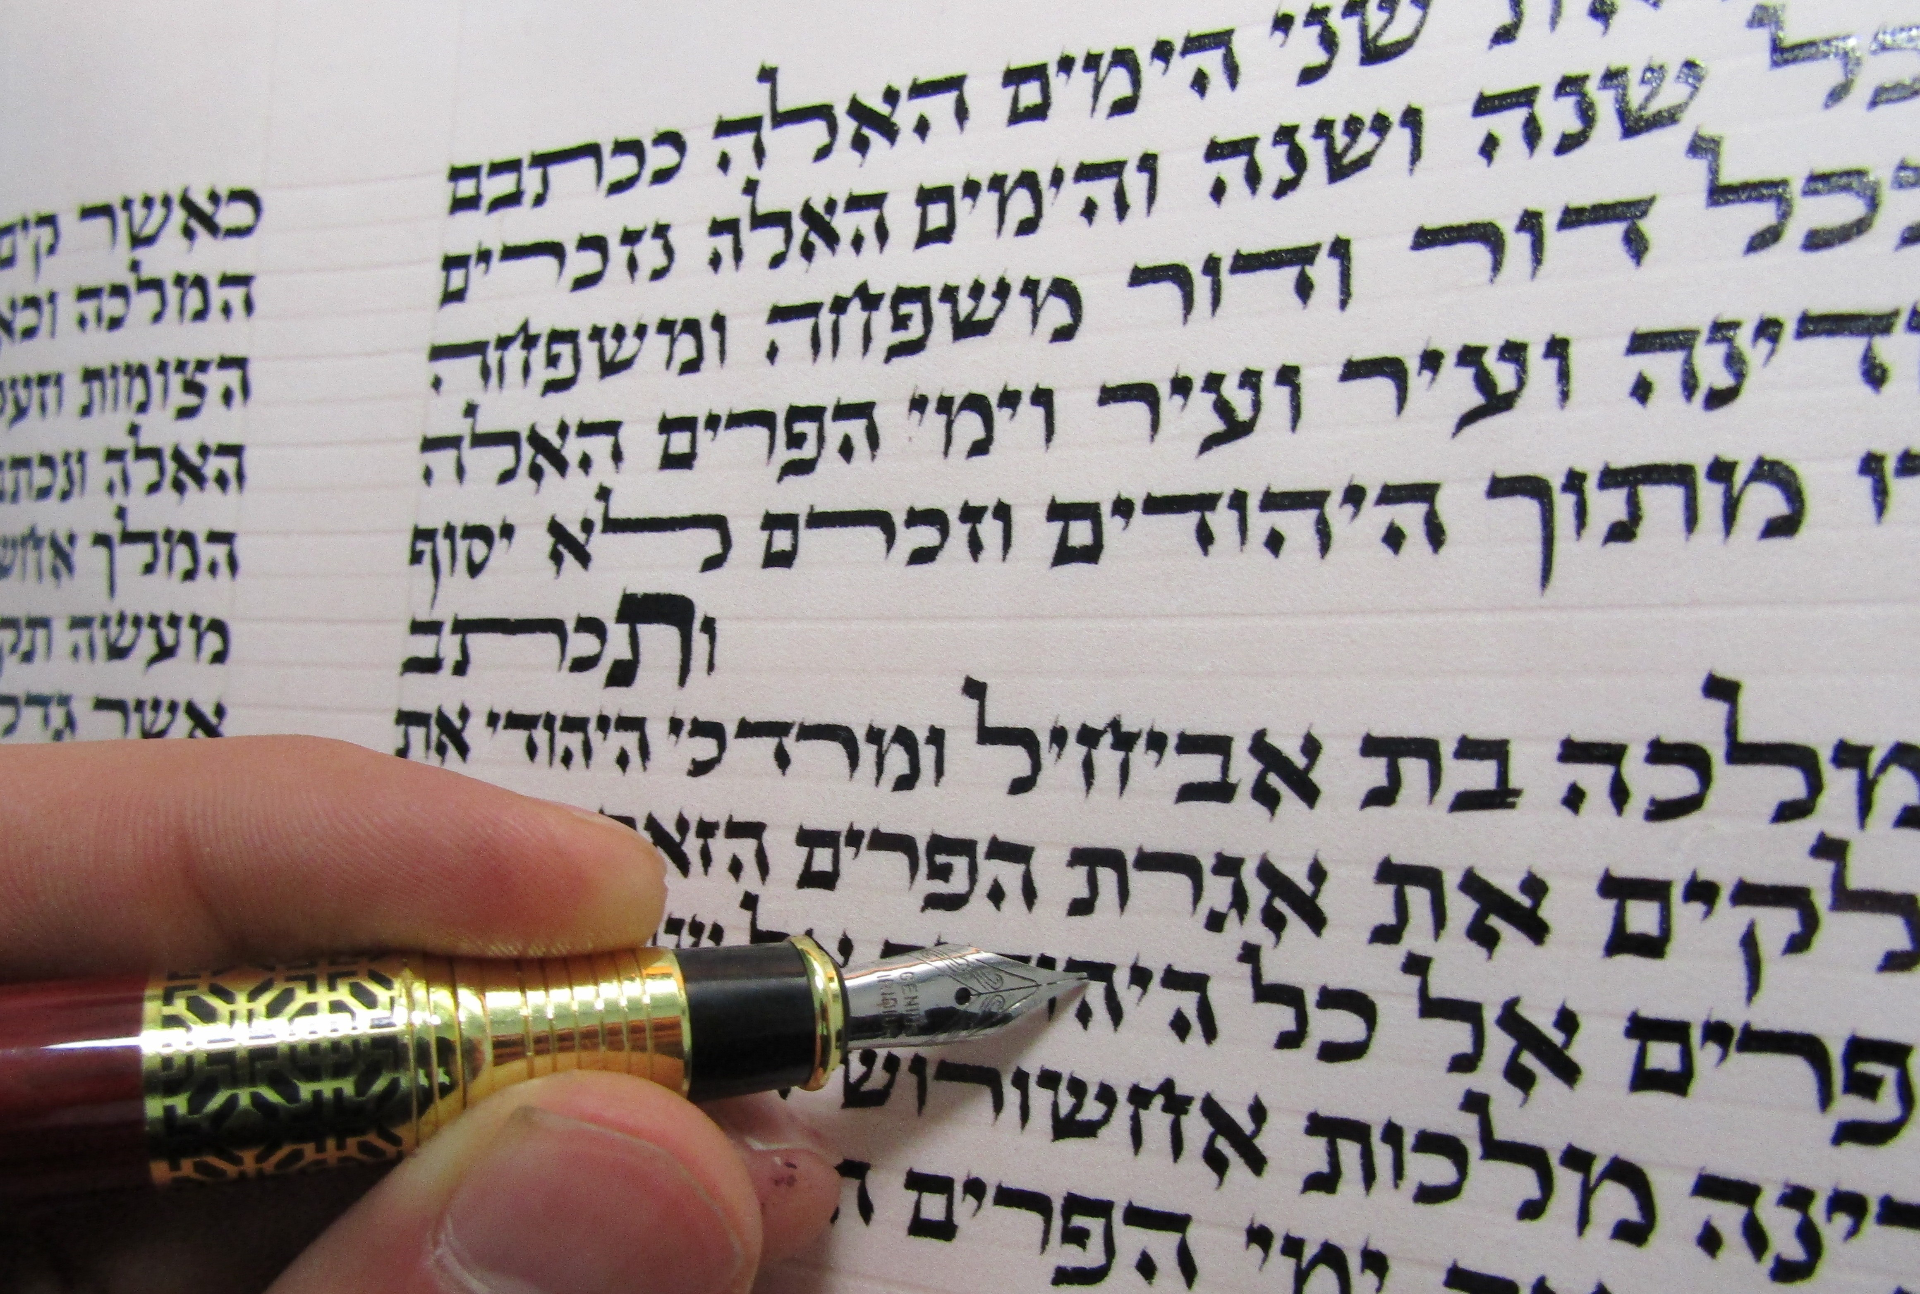 את שני הימים האלה ככתבם
כל שנה ושנה והימים האלה נזכרים
בכל דור ודור משפחה ומשפחה
דינה ועיר ועיר וימי הפרים האלה
רו מתוך היהודים וזכרם לא יסוף
ותכתב
מלכה בת אביחיל ומרדכי היהודי את
לקים את אגרת הפרים הזאת
פרים אל כל היהודים אל ש
דינה מלכות אחשורוש
ימי הפרים ה
כאשר קים
המלכה וכא
הצומות וזעק
האלה ונכתב
המלך אחש
מעשה תק
אשר גדל